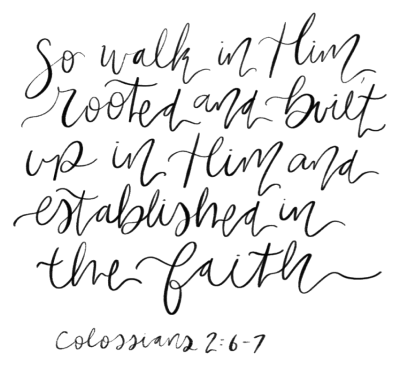 So walk in Him,
rooted and built
up in Him and
established in
the faith
Colossians 2:6-7